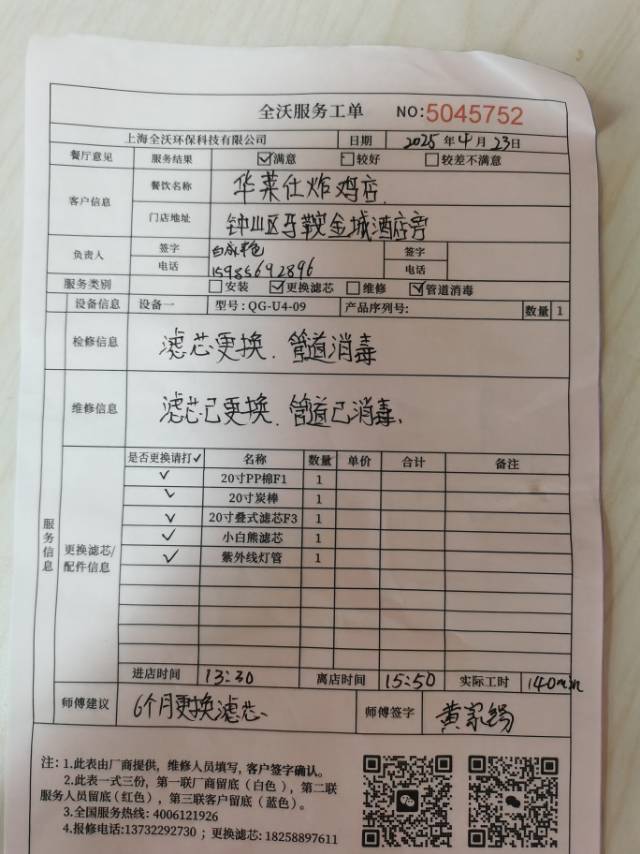 全沃服务工单 NO:5045752
上海全沃环保科技有限公司 日期 2025年4月23日
餐厅意见 服务结果 ☑满意 □较好 □较差不满意
客户信息 餐饮名称 华莱仕炸鸡店
门店地址 钟山区马鞍金城酒店旁
负责人 签字 签字
电话 15985692896 电话
服务类别 □安装 ☑更换滤芯 □维修 ☑管道消毒
设备信息 设备一 型号:QG-U4-09 产品序列号: 数量 1
检修信息 滤芯更换.管道消毒
维修信息 滤芯已更换.管道已消毒.
服务信息
更换滤芯/配件信息
是否更换请打✓ 名称 数量 单价 合计 备注
✓ 20寸PP棉F1 1
✓ 20寸炭棒 1
✓ 20寸叠式滤芯F3 1
✓ 小白熊滤芯 1
✓ 紫外线灯管 1
进店时间 13:30 离店时间 15:50 实际工时 140min
师傅建议 6个月更换滤芯、 师傅签字
注:1.此表由厂商提供,维修人员填写,客户签字确认。
2.此表一式三份,第一联厂商留底(白色),第二联
服务人员留底(红色),第三联客户留底(蓝色)。
3.全国服务热线:4006121926
4.报修电话:13732292730;更换滤芯:18258897611